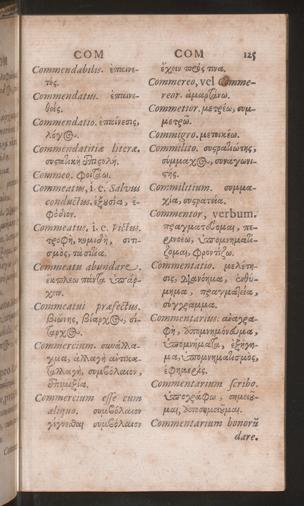 COM
Commendabilis. ἐπαινε-
τός.
Commendatus. ἐπαινε-
θείς.
Commendatio. ἐπαίνεσις,
λόγος.
Commendatitiæ literæ.
συστατικὴ ἐπιστολή.
Commeo. φοιτάω.
Commeatus, i. e. Salvus
conductus. ἐξουσία, ἐ-
φόδιον.
Commeatus, i. e. victus.
τροφὴ, κομιδὴ, σιτι-
σμὸς,
Commeatu abundare.
Commeatui præfectus.
Commercium. συνάλλα-
γμα, ἀλλαγὴ
συμβόλαιον,
ἐπιμιξία.
Commercium esse cum
aliquo. συμβόλαιον
γίγνεσθαι συμβόλαιον
COM 125
ἔχειν πρός τινα.
Commereo, vel Comme-
reor. ἁμαρτάνω.
Commetior. μετρέω, συμ-
μετρῶ.
Commigro. μετοικέω.
Commilito. συστρατιώτης,
σύμμαχος, συναγωνι-
στής.
Commilitium. συμμα-
χία, συστρατεία.
Commentor, verbum.
πραγματεύομαι,
ὑπομνηματί-
ζομαι, φροντίζω.
Commentatio. μελέτη-
σις, διάνοημα, ἐνθύ-
μημα, πραγματεία,
σύγγραμμα.
Commentarius. ἀναγρα-
φὴ, ἀπομνημόνευμα,
ὑπομνήματα, ἐξήγη-
μα, ὑπομνηματισμὸς,
ἐφημερίς.
Commentarium scribo.
ὑπογράφω, σημειοῦ-
μαι, ἀποσημειοῦμαι.
Commentarium bonorū
dare.